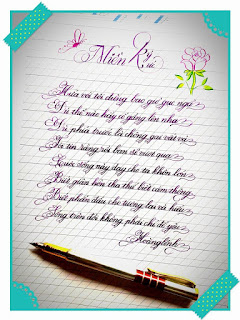 Miền Ký Ức
Hứa với tôi đừng bao giờ gục ngã
Dù thế nào hãy cố gắng lên nha
Dù phía trước là chông gai vất vả
Và tin rằng rồi bạn sẽ vượt qua
Cuộc sống này dạy cho ta khôn lớn
Biết giận hờn tha thứ biết cảm thông
Biết phấn đấu cho tương lai và hiểu
Sống trên đời không phải chỉ để yêu
Hoànglinh